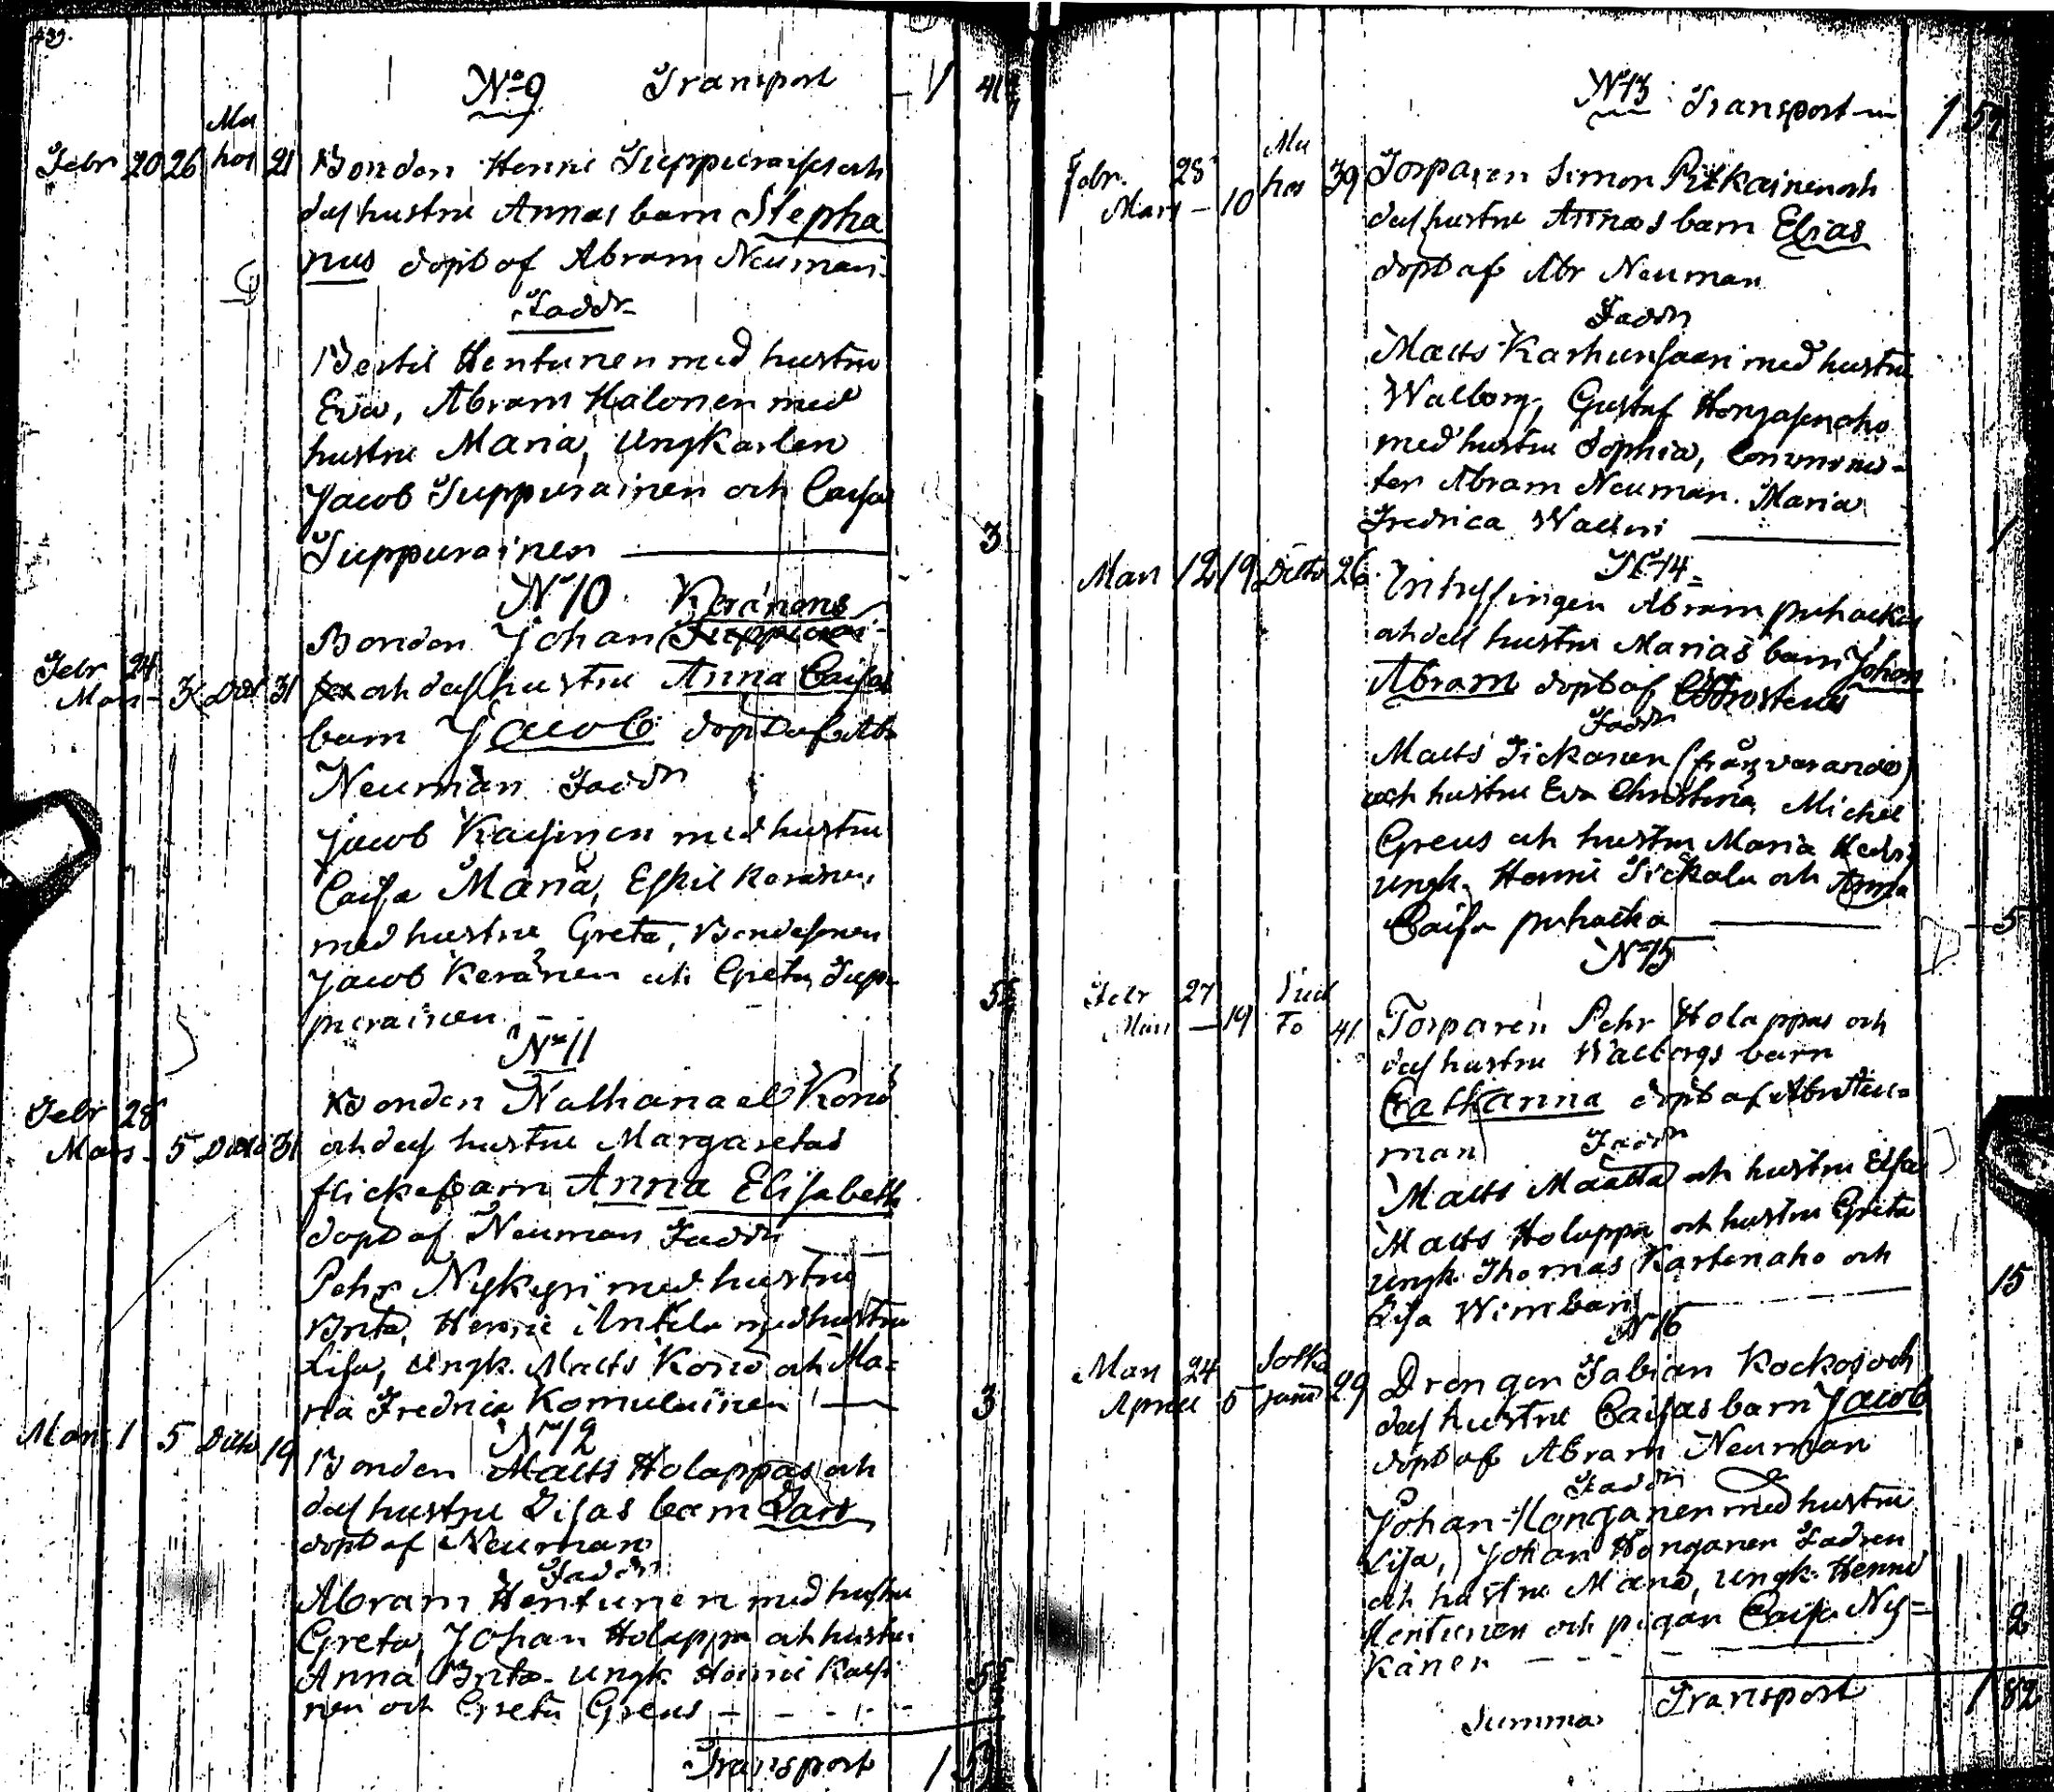 439.
No 9 Transport 1 41
Mu
Febr 20 26 hos 21 Bonden Henric Juppuraises och
dess hustru Annas barn Stepha
nus döpt af Abram Neuman.
Faddr
Bertil Hentunen med hustru
Eva, Abram Halonen med
hustru Maria, Ungkarlen
Jacob Juppurainen och Caisa
Juppurainen 3
No 10 Keränens
Bonden Johan
Febr 24
Mars - 3 31 och dess hustru Anna Caisas
barn Jacob döpt af Abr
Neuman Faddr
Jacob Kaisinen med hustru
Caisa Maria, Eskil Keränen,
med hustru Greta, Bondesonen
Jacob Keränen och Greta Jup-
purainen 5
No 11
Bonden Nathanael Kono
Febr 28
Mars - 5 Ditto 31 och dess hustru Margaretas
flickebarn Anna Elisabeth
döpt af Neuman Faddr
Pehr Nykyri med hustru
Brita, Henric Anttila med hustru
Lisa, Ungk. Matts Kono och Ma=
ria Fredrica Komulainen 3
No 12
Mars 1 5 Ditto 19 Bonden Matts Holappas och
dess hustru Lisas barn Lars
döpt af Neuman
Faddr
Abram Hentunen med hustru
Greta, Johan Holappa och hustru
Anna Brita. Ungk. Henric Kaisi
nen och Greta Greus
Transport 1
No 13 Transport 1
Mu
Febr. 28 hos 39 Torparen Simon Pitkäinen och
Mars - 10 dess hustru Annas barn Elias
döpt af Abr Neuman
Faddr
Matts Karhunsaari med hustru
Walborg, Gustaf Honjasenaho
med hustru Sophia, Comminis-
ter Abram Neuman. Maria
Fredrica Wallin 1
No 14
Mars 12 19 Ditto 26 Inhyssingen Abram puhackas
och dess hustru Marias barn Johan
Abram döpt af
Faddr
Matts Tickanen (frånvarande)
och hustru Eva Christina, Michel
Greus och hustru Maria
ungk. Henric Tickala och Anna
Caisa puhacka 5
No 15
Febr 27
Mars - 19 41 Torparen Pehr Holappas och
dess hustru Walborgs barn
Catharina döpt af Abr Neu=
man Faddr
Matts Määttä och hustru Elsa
Matts Holappa och hustru Greta
ungk. Thomas Kartenaho och
Lisa Wimbari 15
No 16
Mars 24 29 Drengen Fabian Kockos och
Aprill 5 dess hustru Caisas barn Jacob
döpt af Abram Neuman
Faddr
Johan Honganen med hustru
Lisa, Johan Honganen Fadren
och hustru Maria, ungk. Henric
Hentunen och pigan Caisa Ny=
känen 2
Summa Transport 1 82